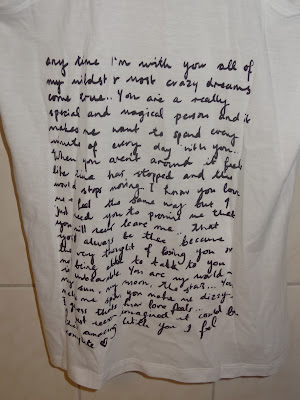 any time I'm with you all of
my wildest & most crazy dreams
come true... You are a really
special and magical person and it
makes me want to spend every
minute of every day with you..
When you aren't around it feels
like time has stopped and the
world stops moving. I know you love
me & feel the same way but I
just need you to promise me that
you will never leave me. That
you'll always be there because
the very thought of losing you or
me being able to talk to you
is unbearable. You are my world -
my sun, my moon, the stars... You
make me spin, you make me dizzy..
I guess that's how love feels..
I just never imagined it could be
so amazing. With you I feel
complete